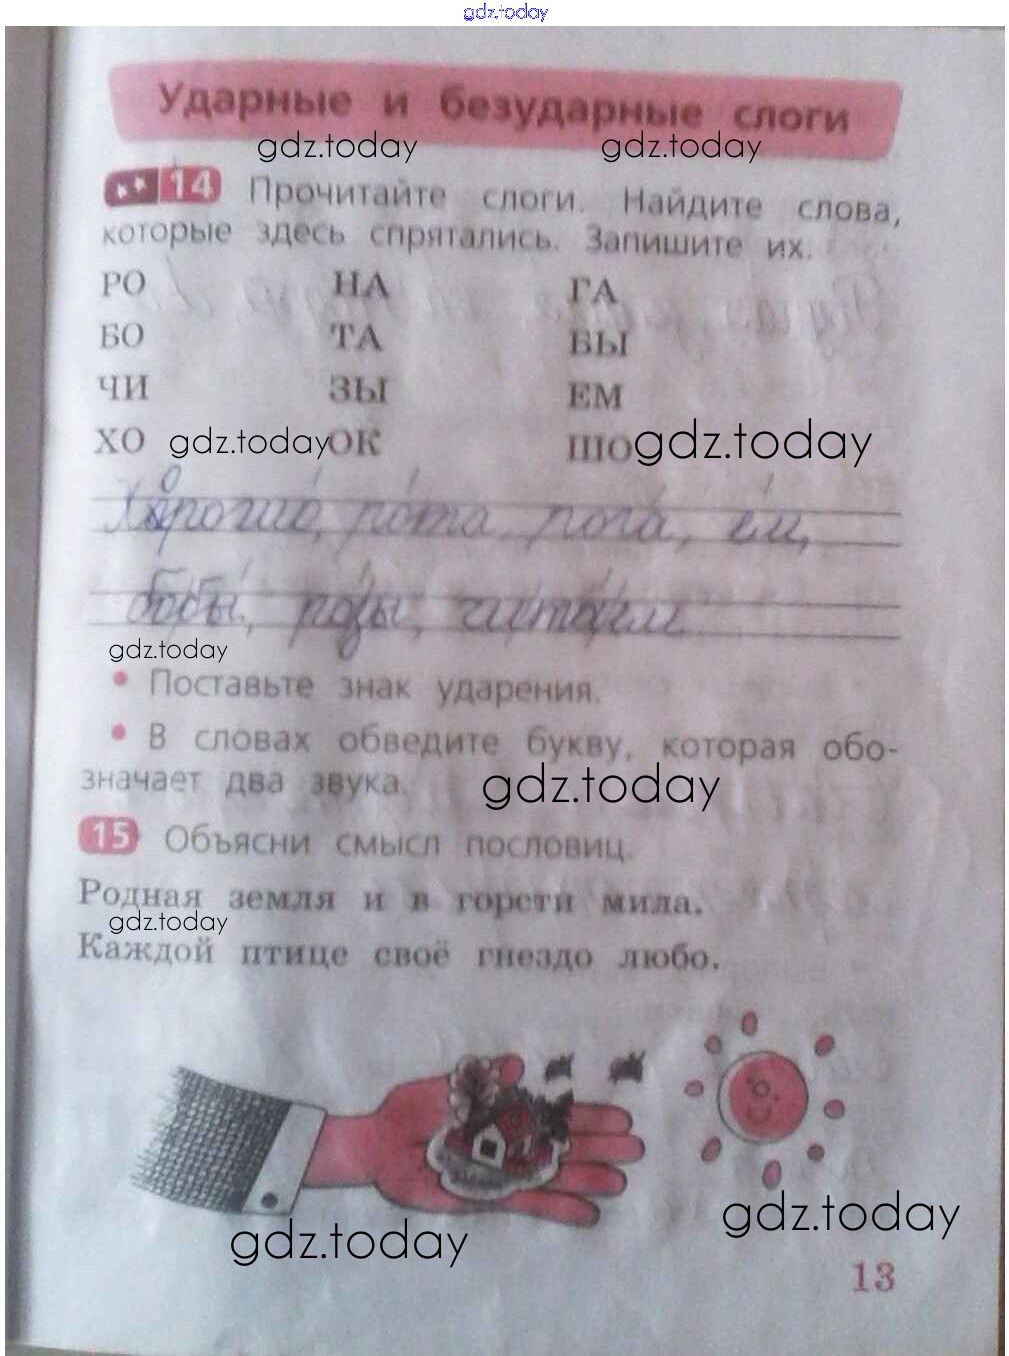 gdz.today
Ударные и безударные слоги
gdz.today gdz.today
14 Прочитайте слоги. Найдите слова,
которые здесь спрятались. Запишите их.
РО НА ГА
БО ТА БЫ
ЧИ ЗЫ ЕМ
ХО ОК ШО
gdz.today gdz.today
Хорошо, рота, рога, ем,
бобы, розы, читаем.
gdz.today
• Поставьте знак ударения.
• В словах обведите букву, которая обо-
значает два звука.
gdz.today
15 Объясни смысл пословиц.
Родная земля и в горсти мила.
gdz.today
Каждой птице своё гнездо любо.
gdz.today
gdz.today
13